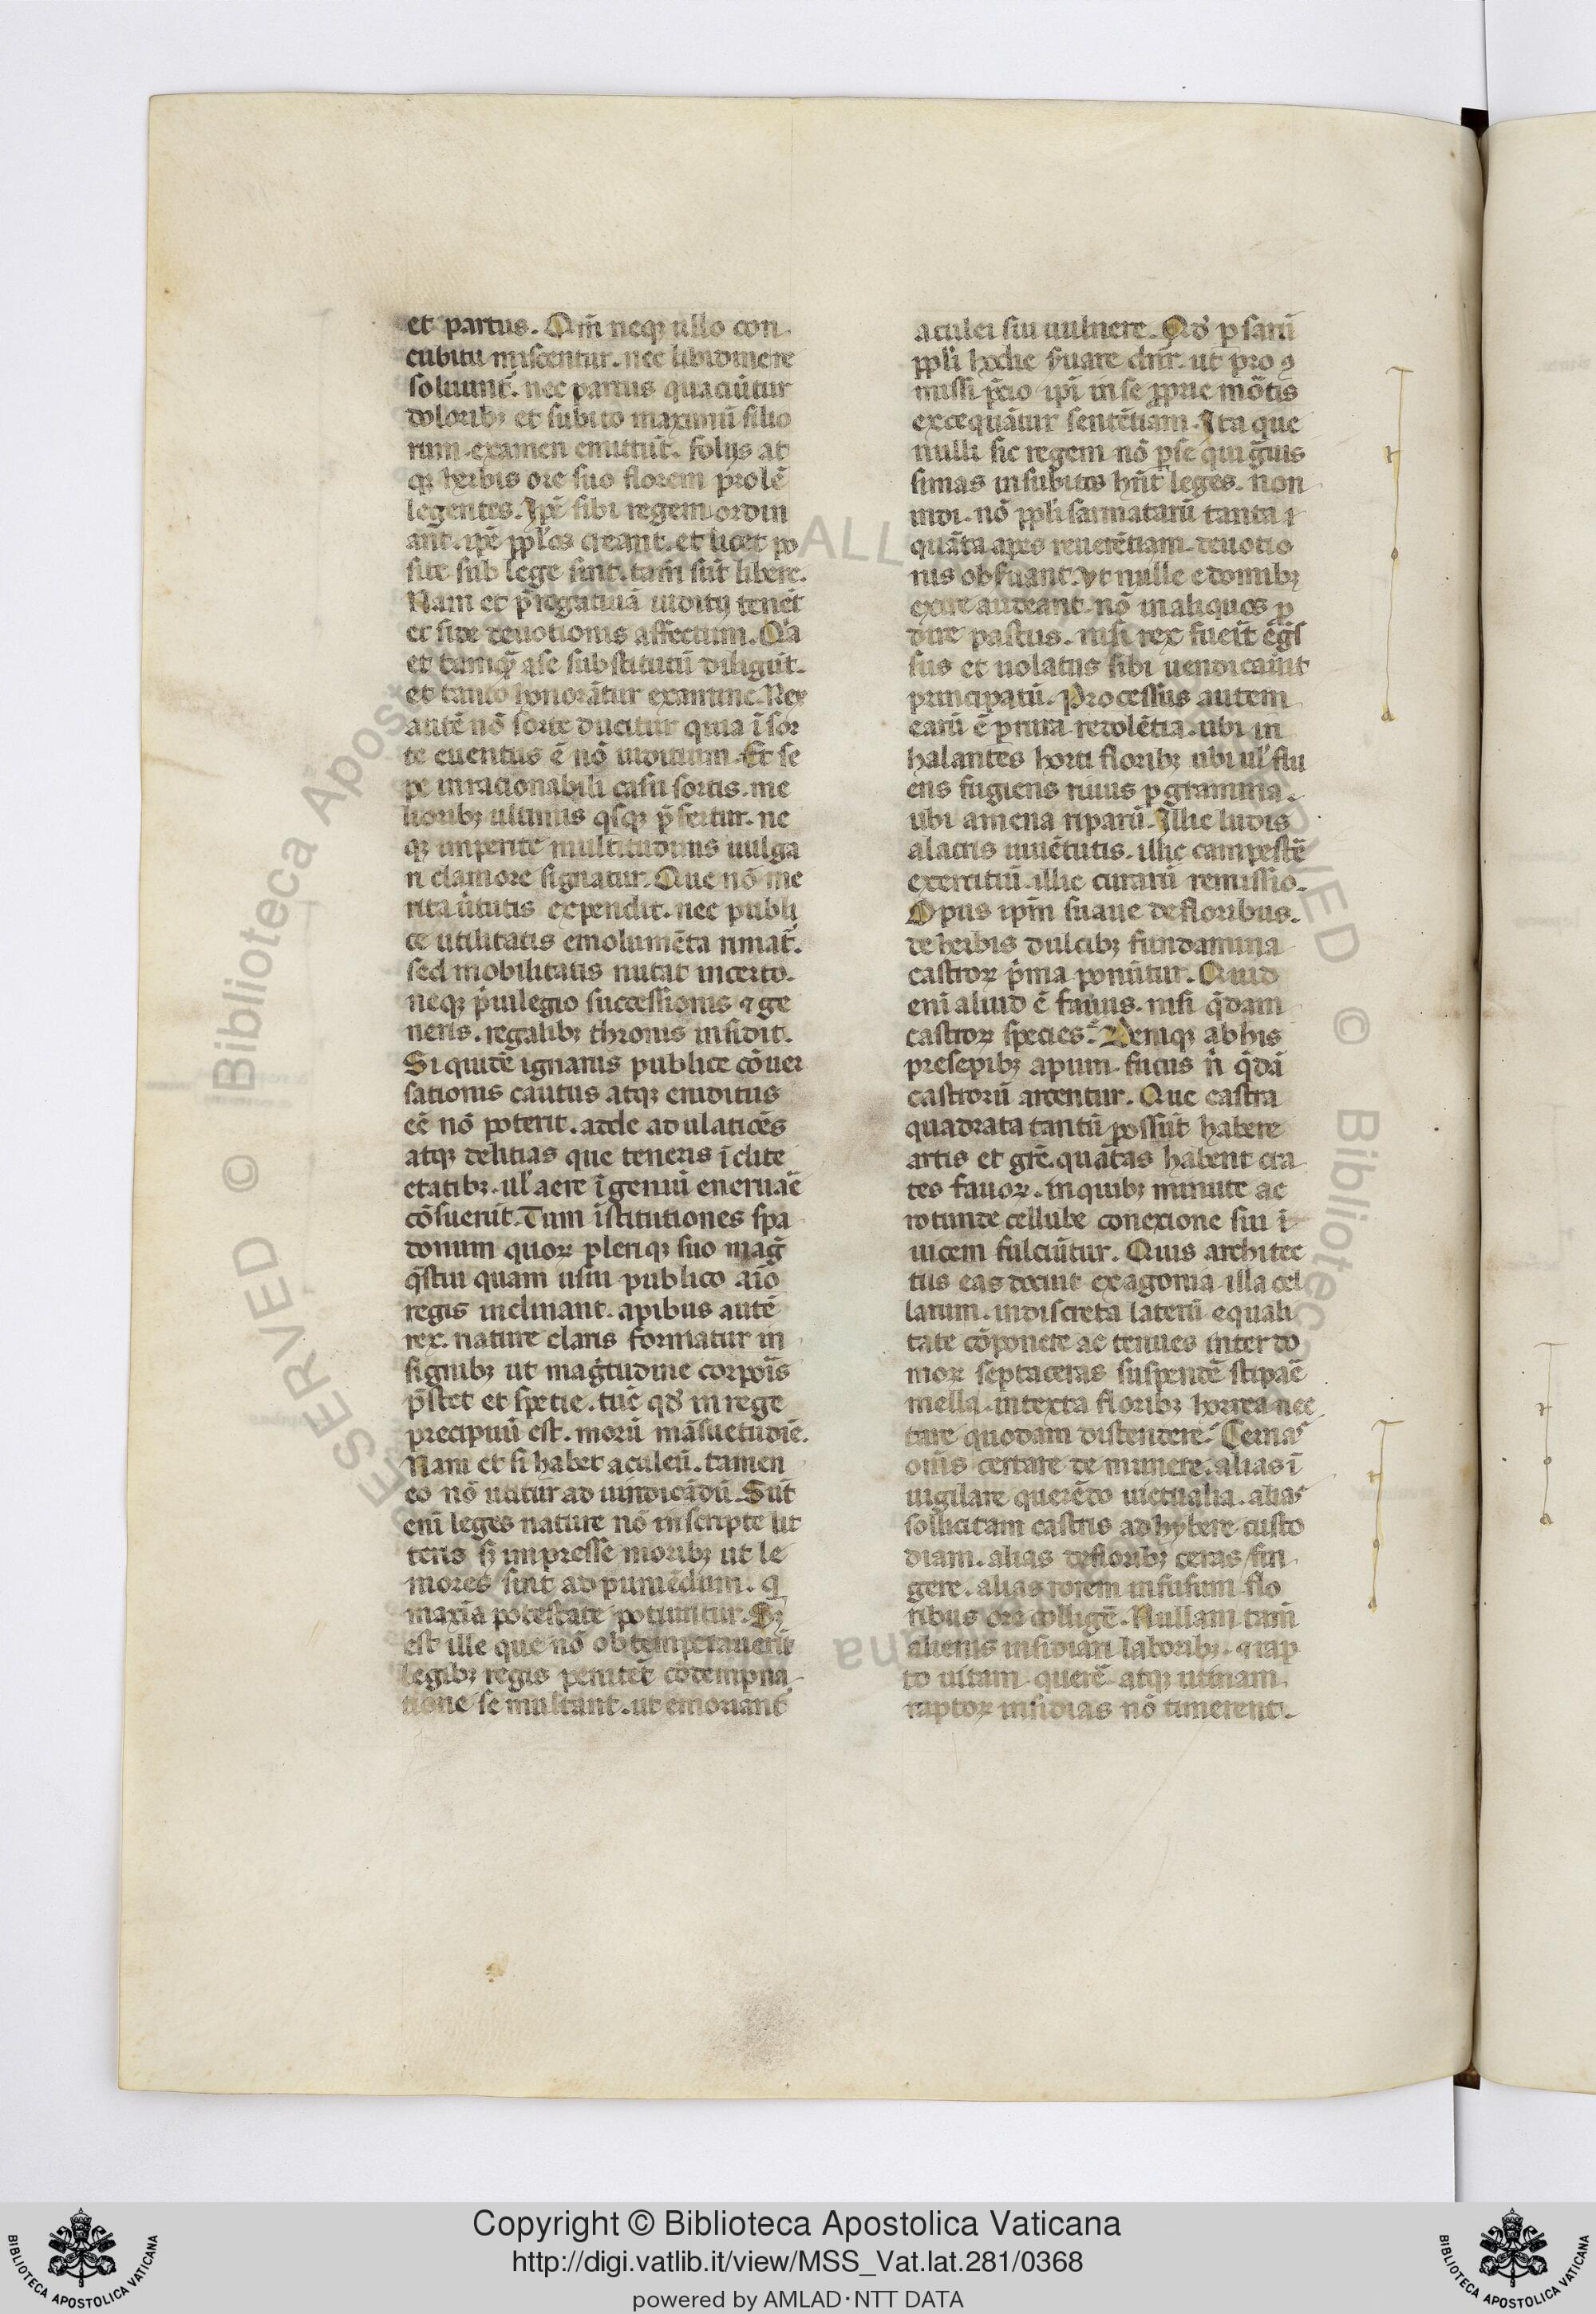 et partus. Qm̄ neqꝫ ullo con
cubitu miscentur. nec libidine re
soluunt̉. nec partus quaciūtur
doloribꝫ et subito maximū filio
rum examen emittūt. folijs at
qꝫ herbis ore suo florem prolē
legentes. Ip̄e sibi regem ordin
ant̄. ip̄e pp̄l'os creant̄. et licet po
site sub lege sint. tam̄ sūt libere.
Nam et p̄rogatiuā iuditij tenēt
et fide deuotionis affectum. Qꝛa
et tamqꝫ̄ a se substitutū diligūt.
et tanto honorātur examine. Rex
autē nō sorte ducitur quia ī sor
te euentus ē nō iuditium. Et se
pe inracionabili casu sortis. me
lioribꝫ ultimus qⁱsqꝫ p̄fertur. ne
qꝫ imperite multitudinis uulga
ri clamore signatur. Que nō me
rita ūtutis expendit. nec publi
ce utilitatis emolumēta rimat̉.
sed mobilitatis nutat incerto.
neqꝫ p̄uilegio successionis ⁊ ge
neris. regalibꝫ thronis insidit.
Si quidē ignarus publice cōuer
sationis cautus atqꝫ eruditus
eē nō poterit. adde adulatiōes
atqꝫ delitias que teneris īclite
etatibꝫ. ul' acre īgeniū eneruaē
cōsuerūt. Tum īstitutiones spa
donum quoꝝ pleriqꝫ suo mag̉
q̄stui quam usui publico aīo
regis inclinant. apibus autē
rex. nature claris formatur in
signibꝫ ut magⁱtudine corpoīs
p̄stet et spetie. tūc qd̄ in rege
precipuū est. morū māsuetudīe.
Nam et si habet aculeū. tamen
eo nō utitur ad uindicādū. Sūt
enī leges nature nō inscripte lit
teris sꝫ impresse moribꝫ ut le
mores sint ad puniēdum. q
maxīa potestate potiuntur. Sꝫ
est ille que nō obtemperauerīt
legibꝫ regis penitēt cōdempna
tione se multant. ut emoriant̉
aculei sui uulnere. Qd̄ p̱sarū
pp̄li hodie ẜuare dn̄r. ut pro ꝯ
missi p̄cio ip̄i in se prop̄rie mōtis
excequātur sentētiam. Ita que
nulli sic regem nō p̱se qui g̃uis
simas in subitos hn̄t leges. non
indi. nō pp̄li sarmatarū tanta ⁊
quāta apes reuerētiam deuotio
nis obẜuant. ut nulle e domibꝫ
exire audeant. nō in aliquos ꝓ
dire pastus. nisi rex fueīt ēg̉s
sus et uolatus sibi uendicauīt
principatū. Processus autem
earū ē p̱ rura redolētia. ubi in
halantes horti floribꝫ ubi ul' flu
ens fugiens riuus p̱ gramina.
ubi amena riparū. Illic ludis
alacris iuuētutis. illic campestē
exercitiū. illic curarū remissio.
Opus ip̄m suaue de floribus.
de herbis dulcibꝫ fundamina
castroꝝ p̄ma ponūtur. Quid
enī aliud ē fauus. nisi q̄dam
castroꝝ species. Deniqꝫ ab his
presepibꝫ apum. fucus n̄ q̄dā
castrorū arcentur. Que castra
quadrata tantū possūt habere
artis et gr̄e. quātas habent cra
tes fauoꝝ. in quibꝫ minute ac
rotunde cellule conexione sui ī
uicem fulciūtur. Quis architec
tus eas docuit exagonia illa cel
larum. indiscreta laterū equali
tate cōponere ac tenues inter do
moꝝ septa ceras suspendē stipaē
mella. intexta floribꝫ horrea nec
tare quodam distendere. Cernas
om̄s certare de munere. alias ī
uigilare querēdo uictualia. alias
sollicitam castris adhybere custo
diam. alias de floribꝫ ceras fin
gere. alias rorem infusum flo
ribus ore colligē. Nullam tam̄
alienis insidiari laboribꝫ. ⁊ rap
to uitam querē atqꝫ utinam
raptoꝝ insidias nō timerent.
Copyright © Biblioteca Apostolica Vaticana
http://digi.vatlib.it/view/MSS_Vat.lat.281/0368
powered by AMLAD·NTT DATA
BIBLIOTECA APOSTOLICA VATICANA
BIBLIOTECA APOSTOLICA VATICANA